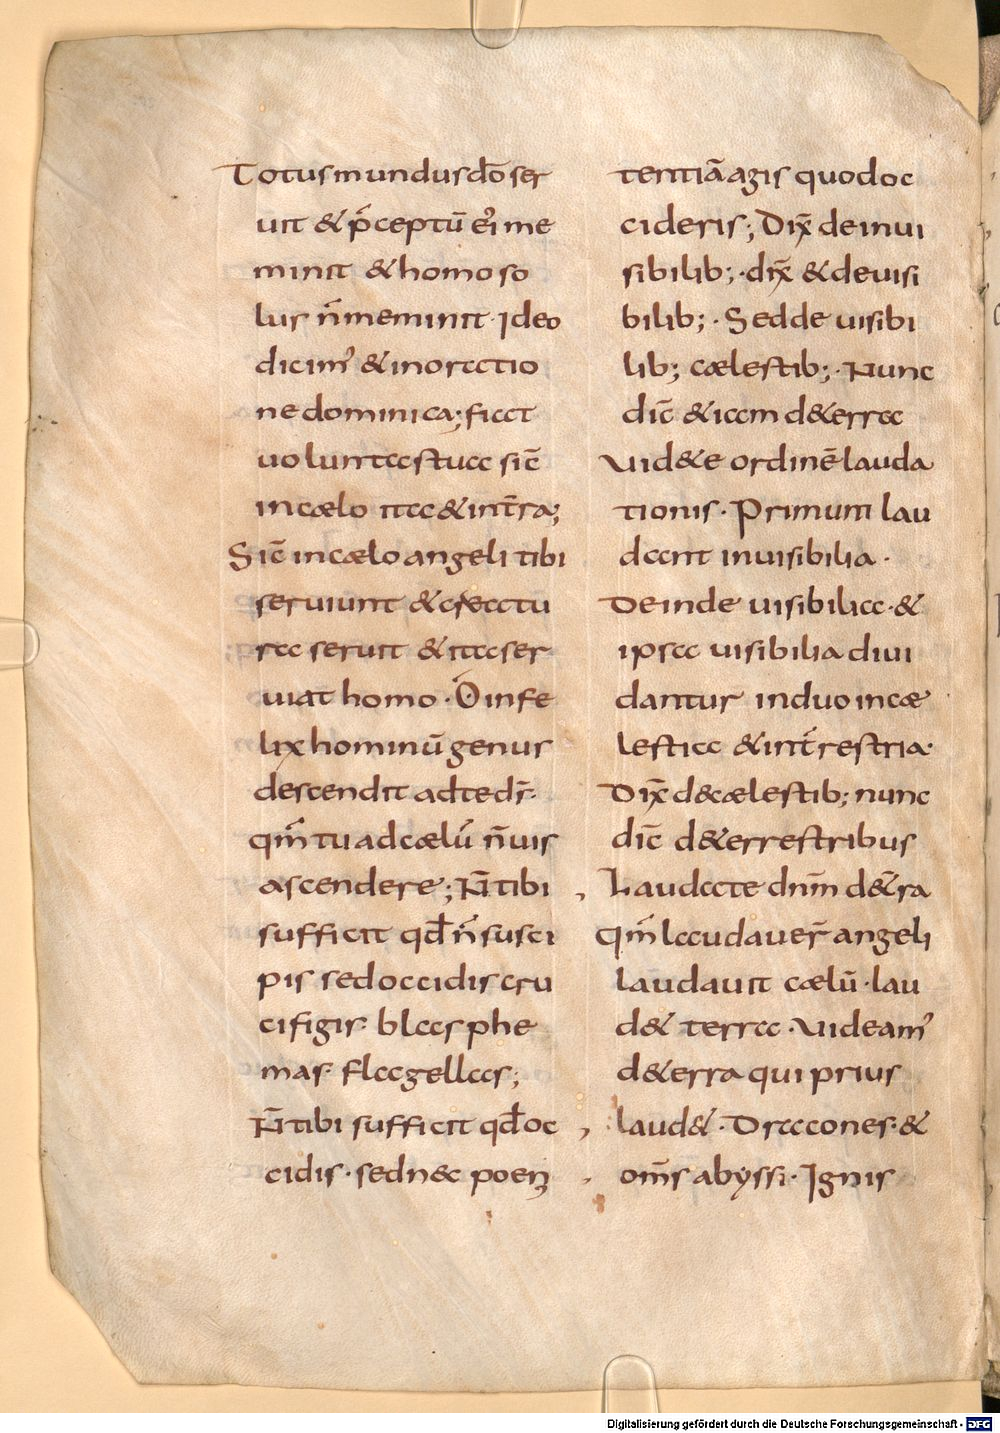 Totus mundus do̅ ser
uit & p̅ceptu̅ ei᾽ me
minit & homo so
lus n̅ meminit· Ideo
dicim᾽ & in oratio
ne dominica; fiat
uoluntas tua sic̅
in cælo ita & in t̅ra;
Sic̅ in cælo angeli tibi
seruiunt & creatu
ra seruit & ita ser
uiat homo· O infe
lix hominu̅ genus
descendit ad te dr̅·
qm̅ tu ad cælu̅ n̅ uis
ascendere; N̅ tibi
sufficit qd̅ n̅ susci
pis sed occidis cru
cifigis· blasphe
mas· flagellas;
N̅ tibi sufficit qd̅ oc
cidis· sed nec poeni
tentia̅ agis quod oc
cideris; Dix̅ de inui
sibilib;· dix̅ & de uisi
bilib;· Sed de uisibi
lib; cælestib;· Nunc
dic̅ & iam d&erra
Uid&e ordine̅ lauda
tionis· Primum lau
dant inuisibilia·
Deinde uisibilia·&
ipsa uisibilia diui
dantur in duo in cæ
lestia & in t̅restria·
Dix̅ de cælestib; nunc
dic̅ d&errestribus
Laudate dnm̅ de t̅ra
qm̅ laudauer̅ angeli
laudauit cælu̅· lau
d& terra· Uideam᾽
d&erra qui prius
laud&· Dracones·&
oms̅ abyssi· Ignis
Digitalisierung gefördert durch die Deutsche Forschungsgemeinschaft - DFG